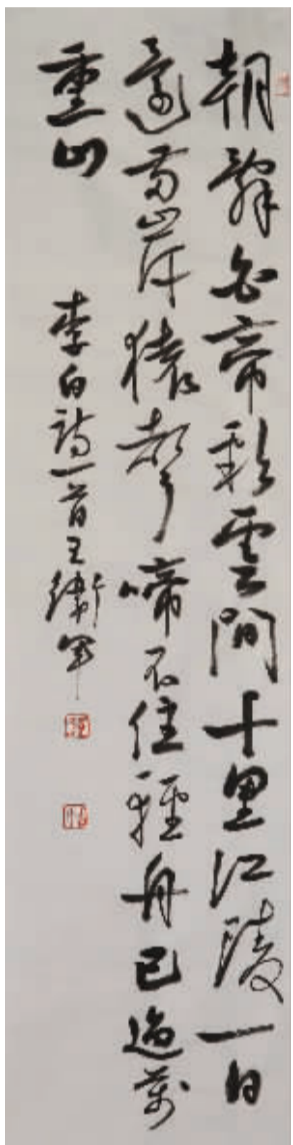 朝辭白帝彩雲間千里江陵一日
還兩岸猿聲啼不住輕舟已過萬
重山
李白詩一首王衛軍